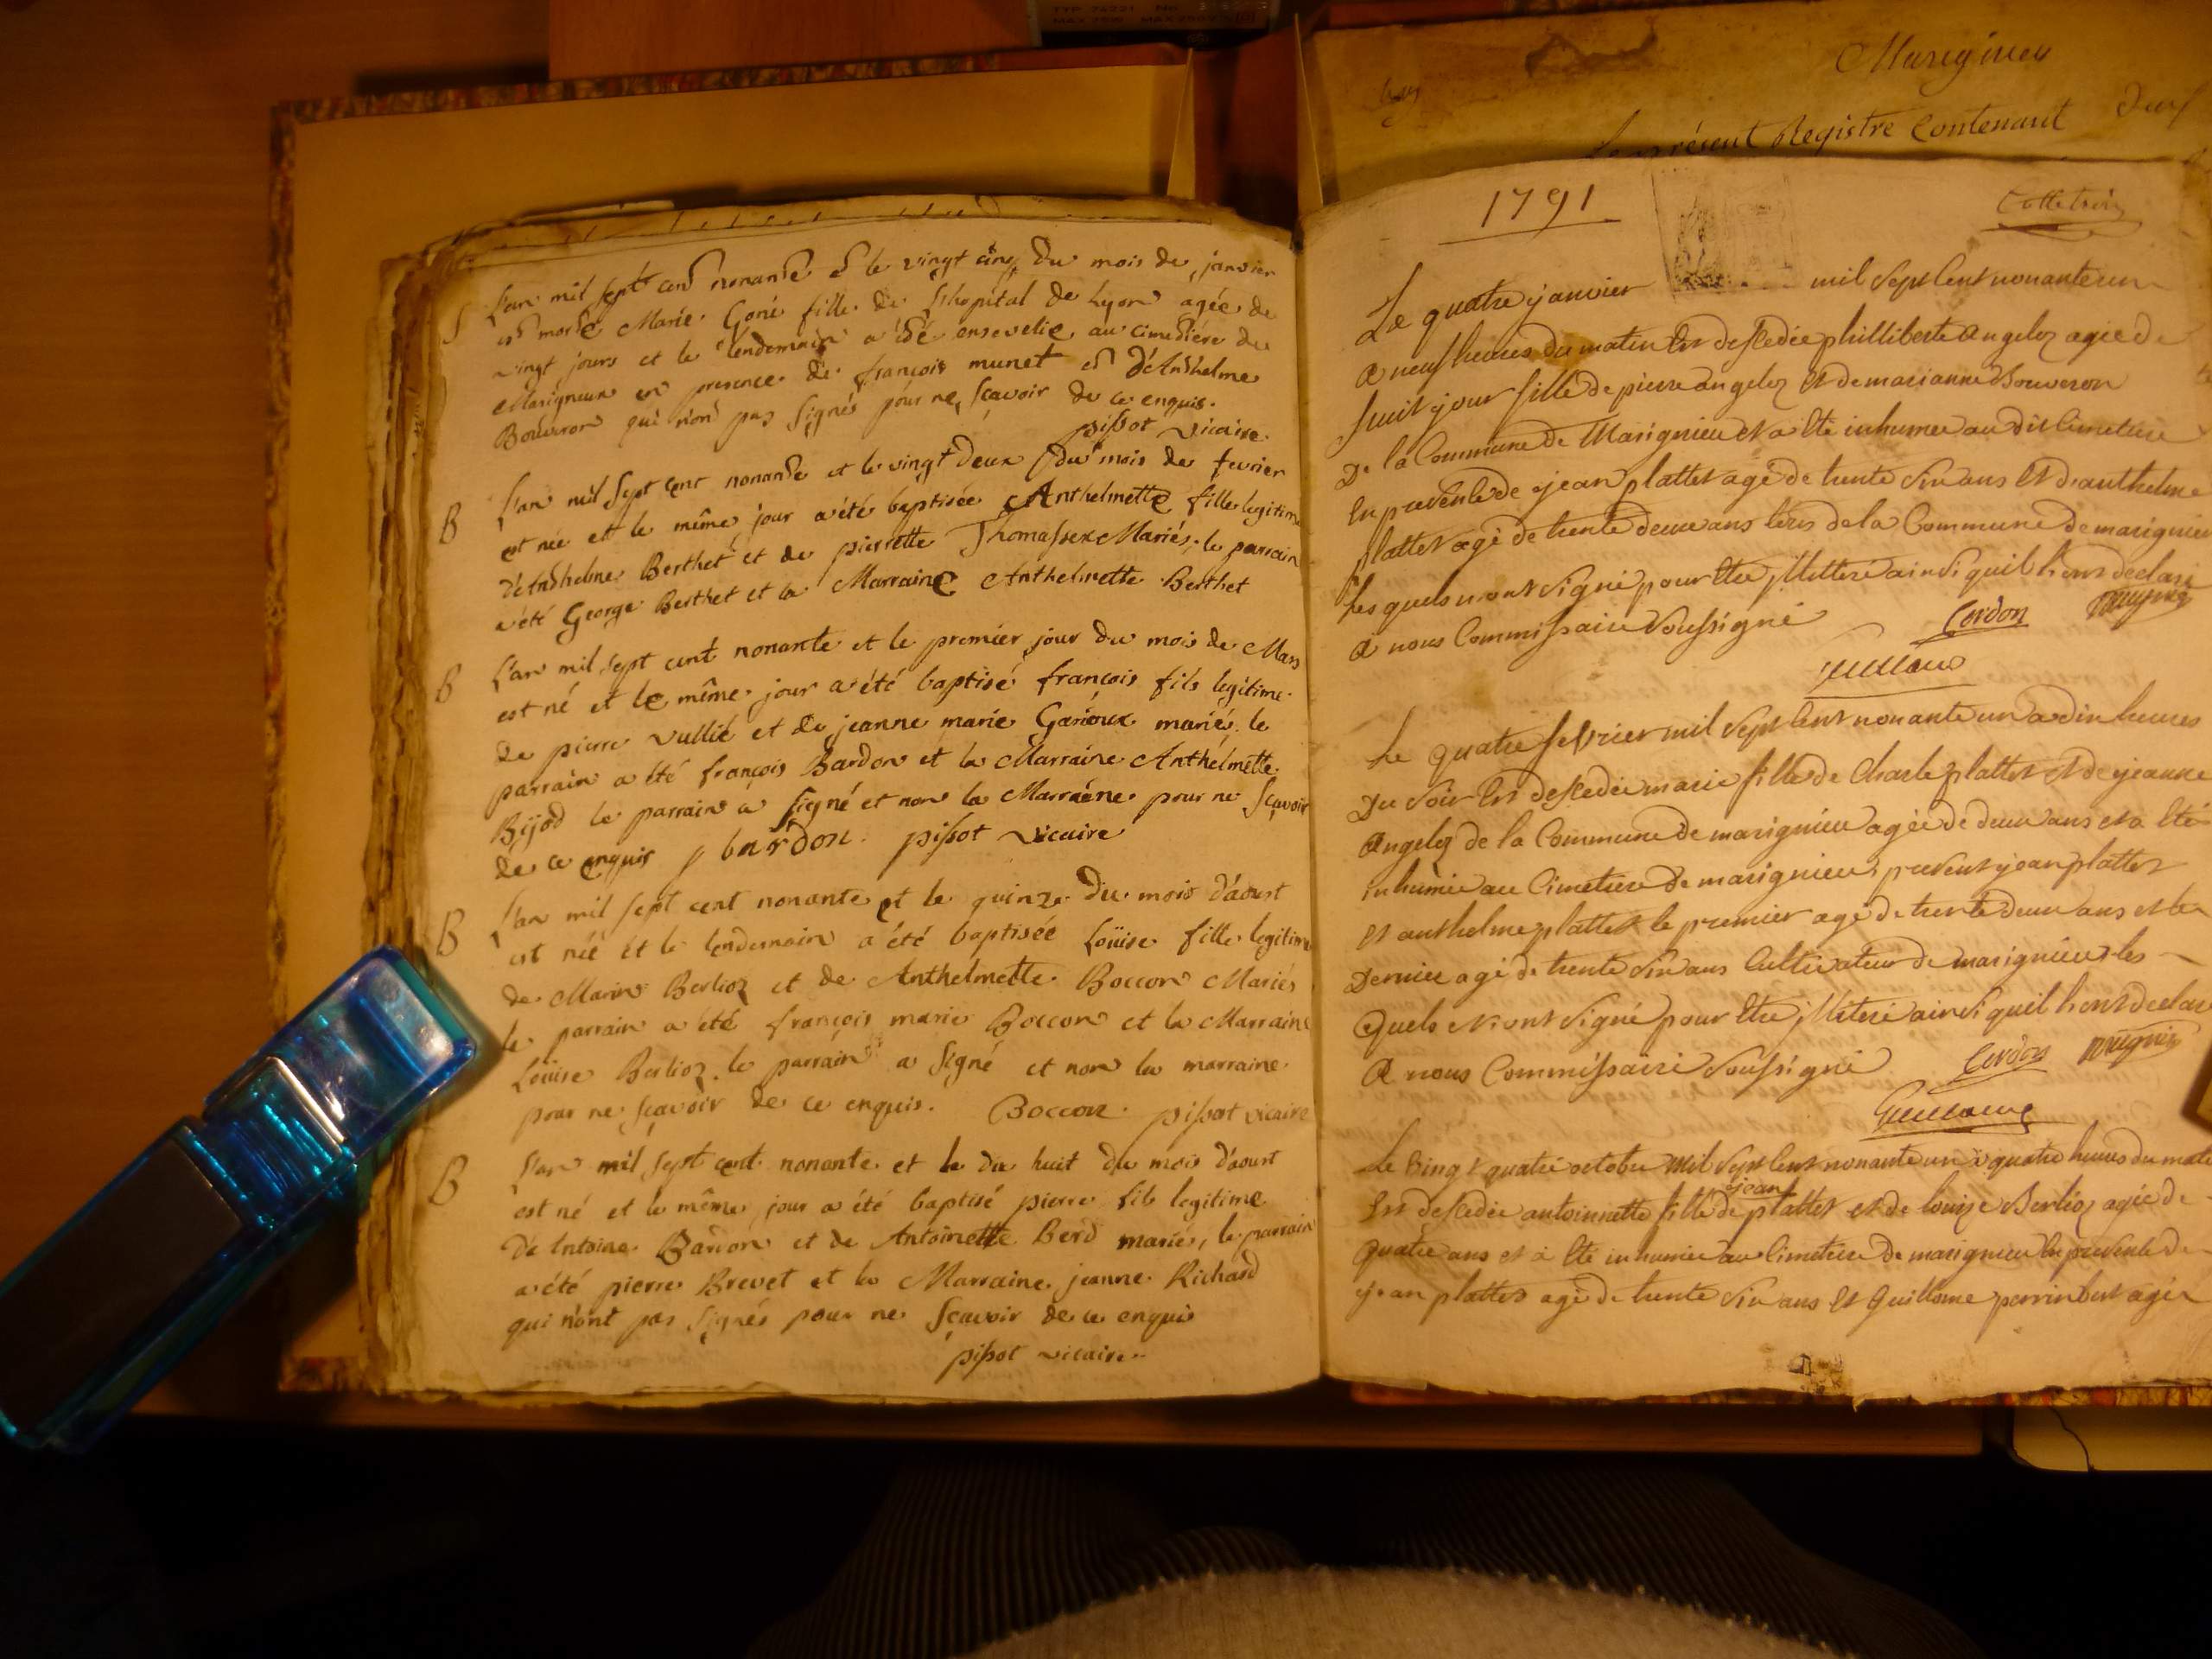 TYP. 74221 No
MAX 75W MAX 250V
S
L'an mil sept cent nonante et le vingt cinq du mois de janvier
est morte Marie Goné fille de l'hopital de Lyon agée de
vingt jours et le lendemain a été ensevelie au cimetiére de
Marignieu en presence de françois munet et d'Anthelme
Bouvron qui n'ont pas signés pour ne sçavoir de ce enquis.
pissot vicaire.
B
L'an mil sept cent nonante et le vingt deux du mois de fevrier
est née et le même jour a été baptisée Anthelmette fille legitime
d'Anthelme Berthet et de pierrette Thomasset Mariés, le parrain
a été George Berthet et la Marraine Anthelmette Berthet
B
L'an mil sept cent nonante et le premier jour du mois de Mars
est né et le même jour a été baptisé françois fils legitime
de pierre vullié et de jeanne marie Garioux mariés le
parrain a été françois Bardon et la Marraine Anthélmette
Bijod le parrain a signé et non la Marraine pour ne sçavoir
de ce enquis f bardon. pissot vicaire
B
L'an mil sept cent nonante et le quinze du mois d'aoust
est née et le lendemain a été baptisée Loüise fille legitime
de Marin Berlioz et de Anthelmette Boccon Mariés
le parrain a été françois marie Boccon et la Marraine
Loüise Berlioz le parrain a signé et non la marraine
pour ne sçavoir de ce enquis. Boccon. pissot vicaire
B
L'an mil sept cent nonante et le dix huit du mois d'aoust
est né et le même jour a été baptisé pierre fils legitime
d'Antoine Barron et de Antoinette Berd mariés, le parrain
a été pierre Brevet et la Marraine jeanne Richard
qui n'ont pas signés pour ne sçavoir de ce enquis
pissot vicaire
Marignieu
Le présent Registre Contenant
1791
Le quatre janvier mil sept cent nonante un
a neuf heures du matin est descedée philliberte Angeloz agée de
huit jour fille de pierre angeloz et de marianne Bouvron
De la Commune de Marignieu et a été inhumée au dit Cimetiere
En presence de jean plattet agé de trente six ans et d'anthelme
plattet agé de trente deux ans tous de la Commune de marignieu
les quels n'ont signé pour être illiteré ainsi quil l'ont declaré
a nous Commissaire soussigné Cordon
Guillaume
Le quatre fevrier mil sept cent nonante un a dix heures
Du soir est descedée marie fille de Charle plattet et de jeanne
Angeloz de la Commune de marignieu agée de deux ans et a été
inhumée au Cimetiere de marignieu, present jean plattet
et anthelme plattet le premier agé de trente deux ans et le
Dernier agé de trente six ans Cultivateur de marignieu les
quels n'ont signé pour être illiteré ainsi quil l'ont declaré
a nous Commissaire soussigné Cordon
Guillaume
Le vingt quatre octobre mil sept cent nonante un a quatre heures du matin
jean
Est descedée antoinnette fille de plattet et de louise Berlioz agée de
quatre ans et a été inhumée au Cimetiere de marignieu en presence de
jean plattet agé de trente six ans et Guillome perrin agé